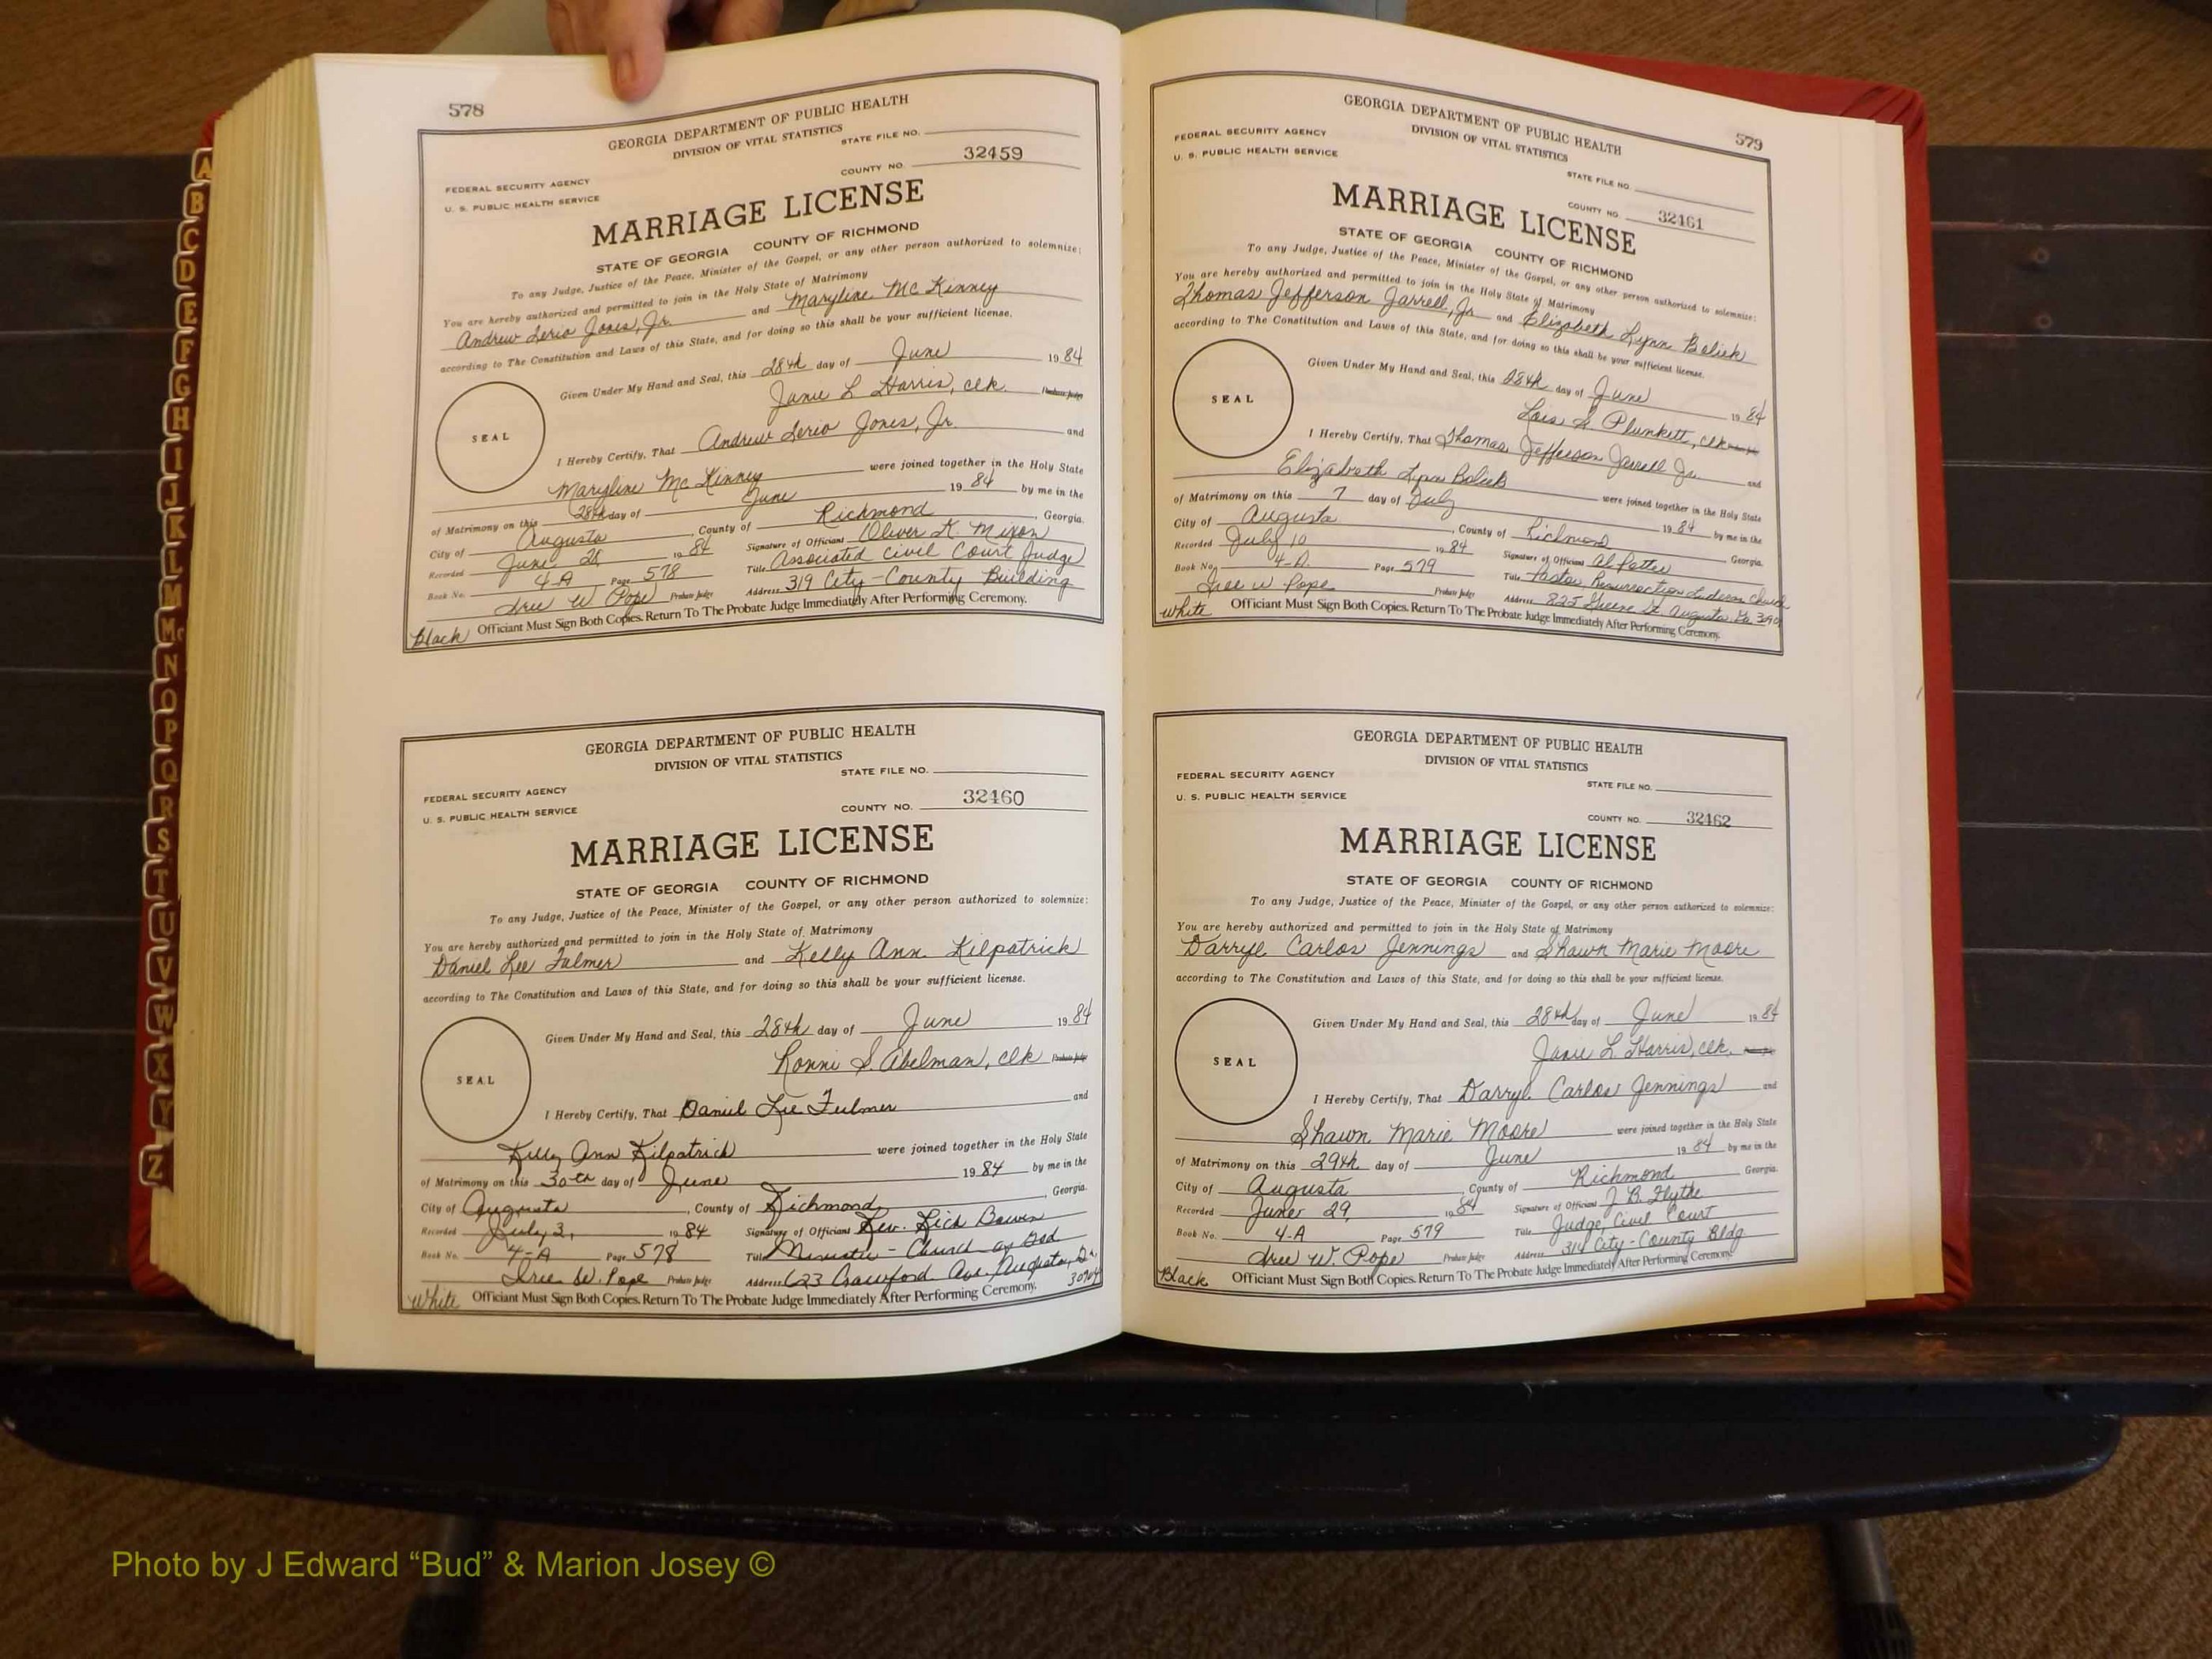 578
GEORGIA DEPARTMENT OF PUBLIC HEALTH
DIVISION OF VITAL STATISTICS
STATE FILE NO.
COUNTY NO. 32459
FEDERAL SECURITY AGENCY
U. S. PUBLIC HEALTH SERVICE
MARRIAGE LICENSE
STATE OF GEORGIA COUNTY OF RICHMOND
To any Judge, Justice of the Peace, Minister of the Gospel, or any other person authorized to solemnize:
You are hereby authorized and permitted to join in the Holy State of Matrimony
Andrew Jones, Jr. and Maryline Mc Kinney
according to The Constitution and Laws of this State, and for doing so this shall be your sufficient license.
Given Under My Hand and Seal, this 28th day of June 1984
Janie L Harris, clk. Probate Judge
SEAL
I Hereby Certify, That Andrew Jones, Jr. and
Maryline Mc Kinney were joined together in the Holy State
of Matrimony on this 28th day of June 1984 by me in the
City of Augusta, County of Richmond, Georgia.
Recorded June 28, 1984 Signature of Officiant Oliver K. Mixon
Book No. 4-A Page 578 Title Associated Civil Court Judge
Iree W Pope Probate Judge Address 319 City-County Building
Black Officiant Must Sign Both Copies. Return To The Probate Judge Immediately After Performing Ceremony.
GEORGIA DEPARTMENT OF PUBLIC HEALTH
DIVISION OF VITAL STATISTICS
STATE FILE NO.
FEDERAL SECURITY AGENCY
U. S. PUBLIC HEALTH SERVICE
COUNTY NO. 32460
MARRIAGE LICENSE
STATE OF GEORGIA COUNTY OF RICHMOND
To any Judge, Justice of the Peace, Minister of the Gospel, or any other person authorized to solemnize:
You are hereby authorized and permitted to join in the Holy State of Matrimony
Daniel Lee Fulmer and Kelly Ann Kilpatrick
according to The Constitution and Laws of this State, and for doing so this shall be your sufficient license.
Given Under My Hand and Seal, this 28th day of June 1984
Ronni S. Abelman, clk Probate Judge
SEAL
I Hereby Certify, That Daniel Lee Fulmer and
Kelly Ann Kilpatrick were joined together in the Holy State
of Matrimony on this 30th day of June 1984 by me in the
City of Augusta, County of Richmond, Georgia.
Recorded July 3, 1984 Signature of Officiant Rev. Rick Bowen
Book No. 4-A Page 578 Title Minister - Church of God
Iree W. Pope Probate Judge Address 623 Crawford Ave. Augusta, Ga. 30904
White Officiant Must Sign Both Copies. Return To The Probate Judge Immediately After Performing Ceremony.
579
GEORGIA DEPARTMENT OF PUBLIC HEALTH
DIVISION OF VITAL STATISTICS
FEDERAL SECURITY AGENCY
U. S. PUBLIC HEALTH SERVICE
STATE FILE NO.
COUNTY NO. 32461
MARRIAGE LICENSE
STATE OF GEORGIA COUNTY OF RICHMOND
To any Judge, Justice of the Peace, Minister of the Gospel, or any other person authorized to solemnize:
You are hereby authorized and permitted to join in the Holy State of Matrimony
Thomas Jefferson Jarrell, Jr. and Elizabeth Lynn Bolick
according to The Constitution and Laws of this State, and for doing so this shall be your sufficient license.
Given Under My Hand and Seal, this 28th day of June 1984
Lois S. Plunkett, clk
SEAL
I Hereby Certify, That Thomas Jefferson Jarrell Jr. and
Elizabeth Lynn Bolick were joined together in the Holy State
of Matrimony on this 7 day of July 1984 by me in the
City of Augusta, County of Richmond Georgia.
Recorded July 10 1984 Signature of Officiant
Book No. 4-A Page 579 Title Pastor, Resurrection Lutheran Church
Iree W. Pope Probate Judge Address 825 Greene St. Augusta, Ga.
White Officiant Must Sign Both Copies. Return To The Probate Judge Immediately After Performing Ceremony.
GEORGIA DEPARTMENT OF PUBLIC HEALTH
DIVISION OF VITAL STATISTICS
FEDERAL SECURITY AGENCY
U. S. PUBLIC HEALTH SERVICE
STATE FILE NO.
COUNTY NO. 32462
MARRIAGE LICENSE
STATE OF GEORGIA COUNTY OF RICHMOND
To any Judge, Justice of the Peace, Minister of the Gospel, or any other person authorized to solemnize:
You are hereby authorized and permitted to join in the Holy State of Matrimony
Darryl Carlos Jennings and Shawn Marie Moore
according to The Constitution and Laws of this State, and for doing so this shall be your sufficient license.
Given Under My Hand and Seal, this 28th day of June 1984
Janie L. Harris, clk.
SEAL
I Hereby Certify, That Darryl Carlos Jennings and
Shawn Marie Moore were joined together in the Holy State
of Matrimony on this 29th day of June 1984 by me in the
City of Augusta, County of Richmond Georgia.
Recorded June 29, 1984 Signature of Officiant J. B. Flythe
Book No. 4-A Page 579 Title Judge, Civil Court
Iree W. Pope Probate Judge Address 314 City-County Bldg
Black Officiant Must Sign Both Copies. Return To The Probate Judge Immediately After Performing Ceremony.
A
B
C
D
E
F
G
H
I
J
K
L
M
Mc
N
O
P
Q
R
S
T
U
V
W
X
Y
Z
Photo by J Edward “Bud” & Marion Josey ©